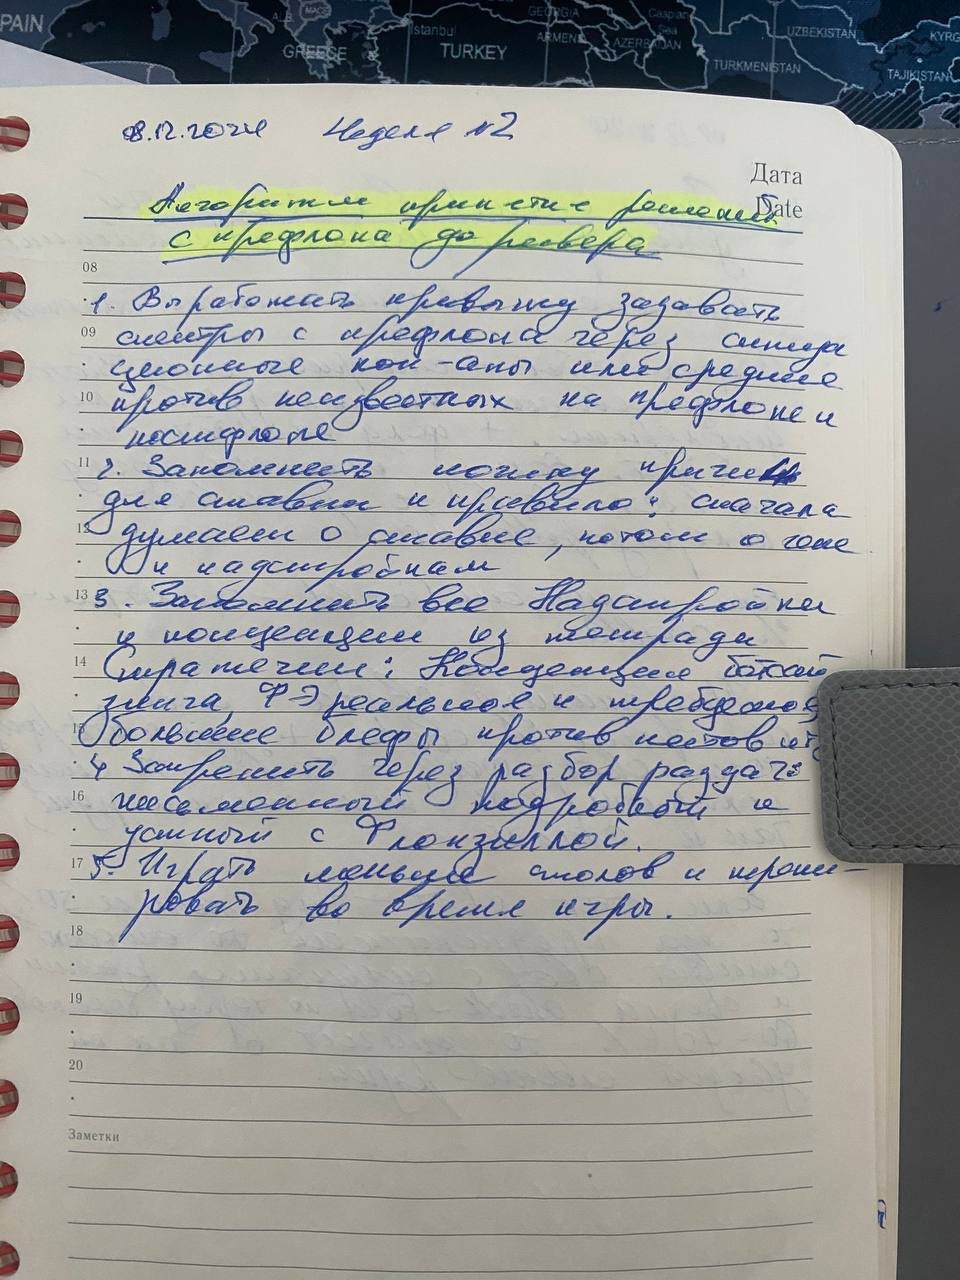 PAIN
GREECE
Istanbul
TURKEY
GEORGIA
ARMENI
AZERBAIJAN
Caspian
UZBEKISTAN
TURKMENISTAN
KYRG
TAJIKISTAN
08.12.2024 Неделя №2
Дата
Date
Алгоритм принятие решений
с префлопа до ривера
08
1. Выработать привычку задавать
09 спектры с префлопа через ситуа
ционные поп-апы или средние
10 против неизвестных на префлопе и
постфлопе
11 2. Запомнить логику причин
для ставки и правило: сначала
12 думаем о ставке, потом о чеке
и надстройкам
13 3. Запомнить все Надстройки
и концепции из тетради
14 Стратегии: Концепция
ФЭ реальное и требуемое,
15 большие блефы против натсов и
4 Закрепить через разбор раздач
16 письменный подробный и
устный с Флонзиллой.
17 5. Играть меньше столов и трени-
ровать во время игры.
18
19
20
Заметки